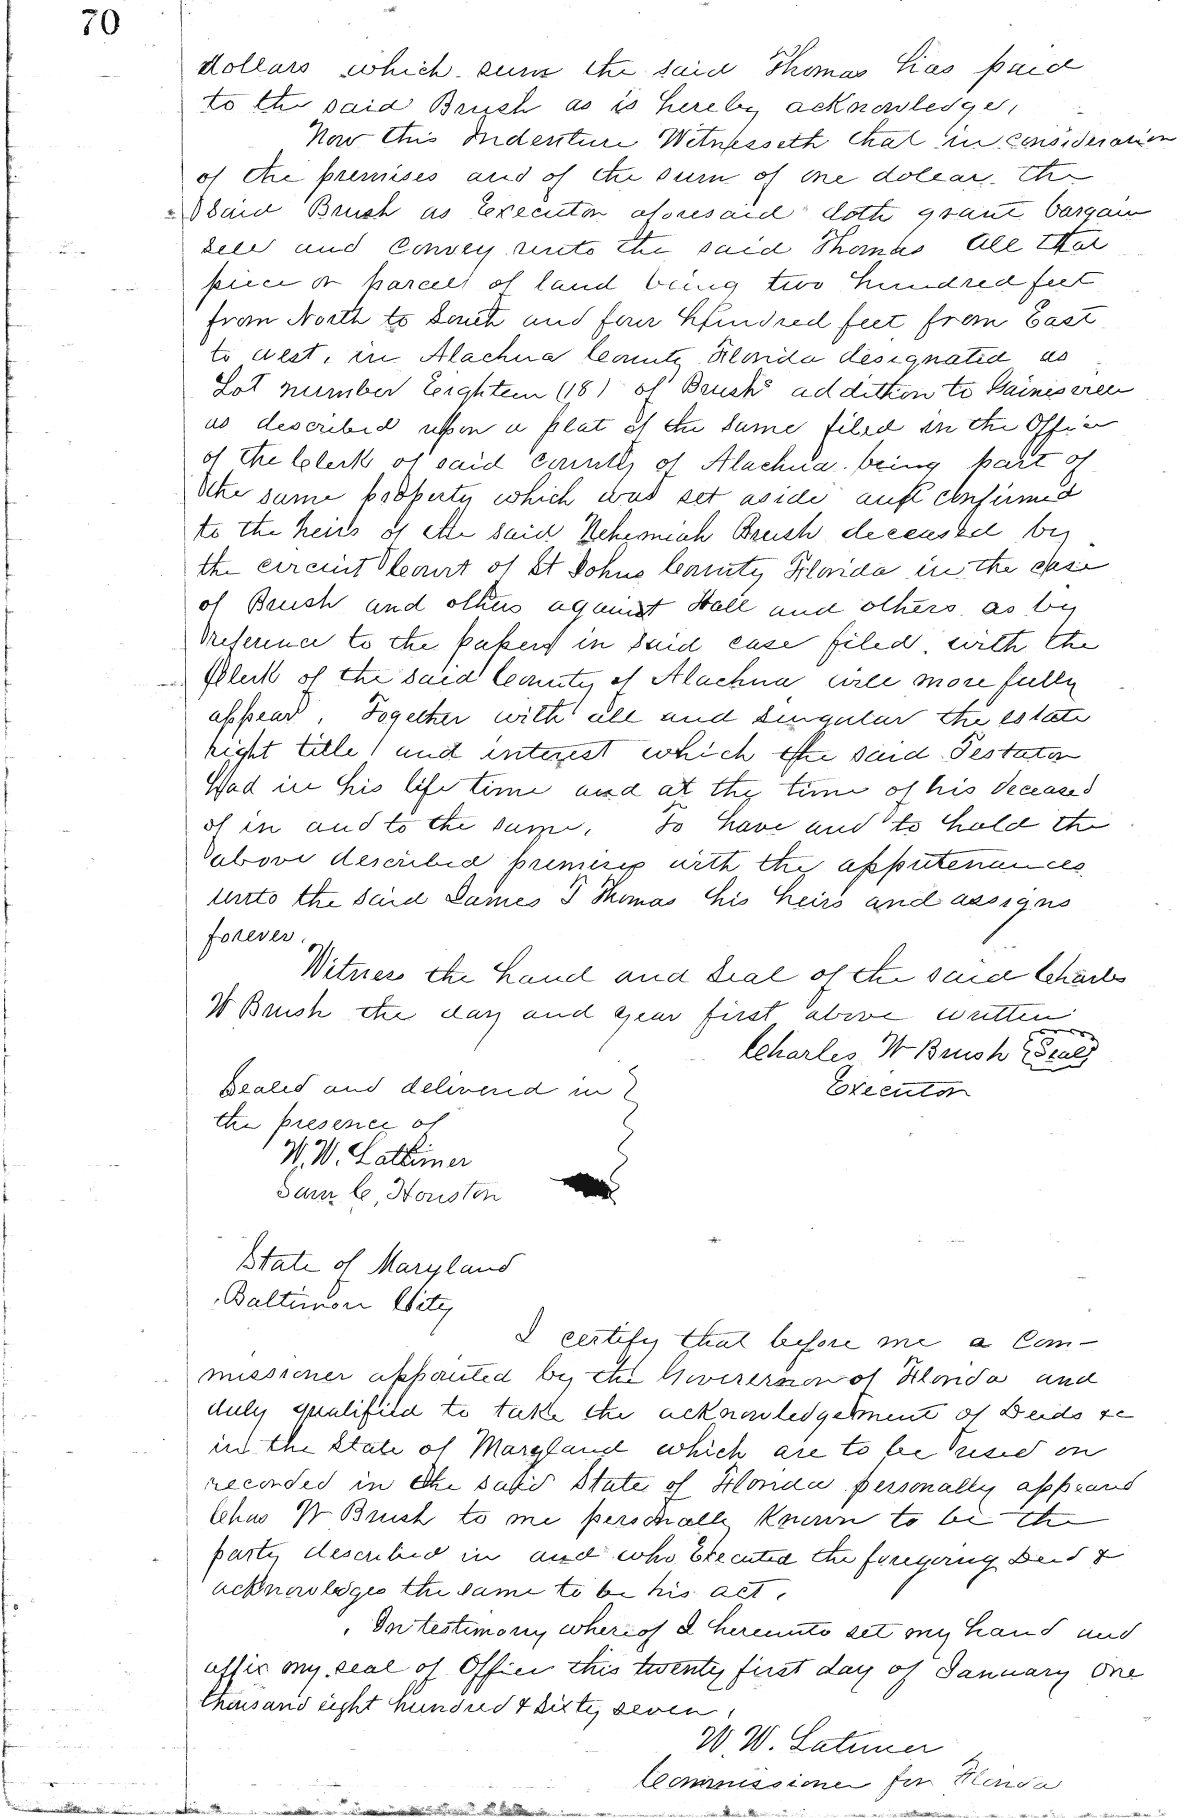 70
dollars which sum the said Thomas has paid
to the said Brush as is hereby acknowledge,
Now this Indenture Witnesseth that in consideration
of the premises and of the sum of one dollar the
Said Brush as Executor aforesaid doth grant bargain
sell and convey unto the said Thomas All that
piece or parcel of land being two hundred feet
from North to South and four hundred feet from East
to west, in Alachua County Florida designated as
Lot number Eighteen (18) of Brush's addition to Gainesville
as described upon a plat of the same filed in the Office
of the Clerk of said County of Alachua being part of
the same property which was set aside and confirmed
to the heirs of the said Nehemiah Brush deceased by
the circuit Court of St Johns County Florida in the case
of Brush and others against Hall and others as by
reference to the papers in said case filed with the
Clerk of the said County of Alachua will more fully
appear, Together with all and singular the estate
right title and interest which the said Testator
Had in his life time and at the time of his deceased
of in and to the same. To have and to hold the
above described premises with the apputenances
unto the said James T Thomas his heirs and assigns
forever.
Witness the hand and Seal of the said Charles
W Brush the day and year first above written
Charles W Brush {Seal}
Executor
Sealed and delivered in
the presence of
W. W. Lattimer
Sam C, Houston
State of Maryland
Baltimore City
I certify that before me a Com-
missioner appointed by the Goverernor of Florida and
duly qualified to take the acknowledgement of Deeds &c
in the State of Maryland which are to be used or
recorded in the said State of Florida personally appeared
Chas W Brush to me personally Known to be the
party described in and who Executed the foregoing Deed &
acknowledges the same to be his act.
In testimony whereof I hereunto set my hand and
affix my seal of Office this twenty first day of January one
thousand eight hundred & sixty seven,
W. W. Latimer
Commissioner for Florida